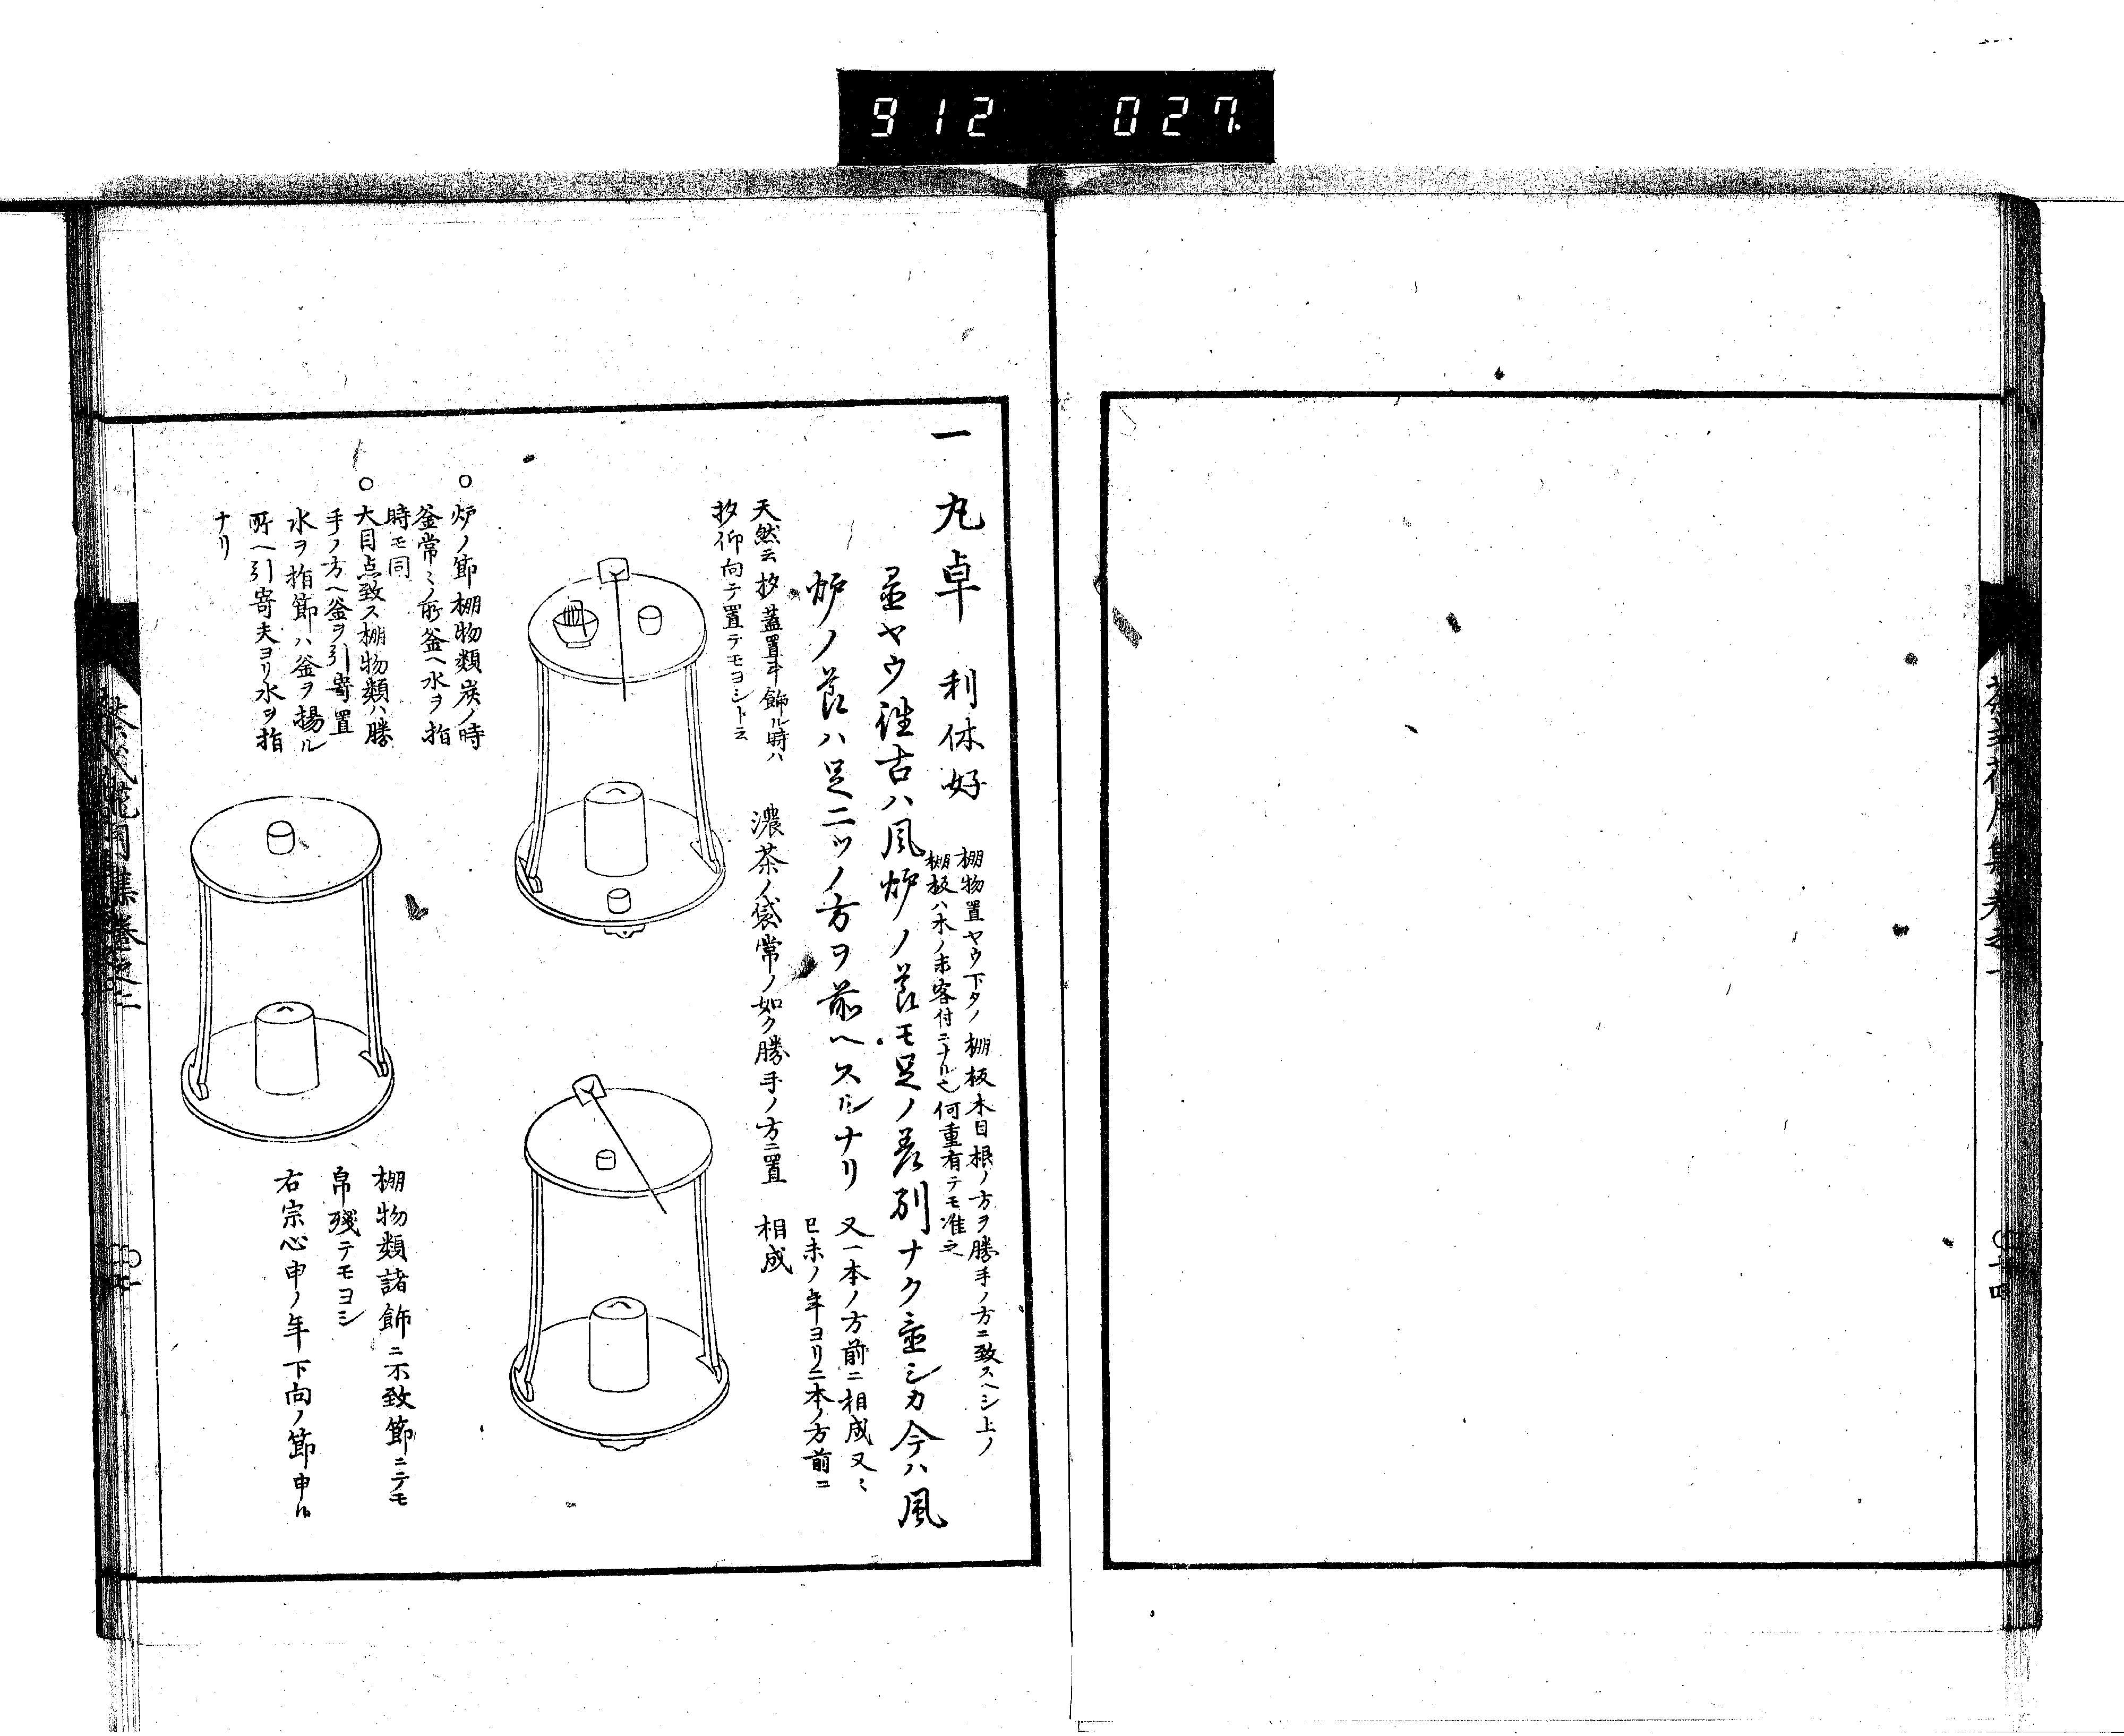 912 027
一 丸卓 利休好
棚物置ヤウ下タノ棚板木目根ノ方ヲ勝手ノ方ニ致スヘシ上ノ
棚板ハ木ノ末客付ニナル也何重有テモ准之
置ヤウ往古ハ風炉ノ節モ足ノ差別ナク置シカ今ハ風
炉ノ節ハ足二ツノ方ヲ前ヘスルナリ
又一本ノ方前ニ相成又ミ
巳未ノ年ヨリ二本ノ方前ニ
相成
天然云杓蓋置斗飾ル時ハ
杓仰向テ置テモヨシト云
濃茶ノ袋常ノ如ク勝手ノ方ニ置
○炉ノ節棚物類炭ノ時
釜常ミノ所釜ヘ水ヲ指
時モ同
○大目点致ス棚物類ハ勝
手ノ方ヘ釜ヲ引寄置
水ヲ指節ハ釜ヲ揚ル
所ヘ引寄夫ヨリ水ヲ指
ナリ
棚物類諸飾ニ不致節ニテモ
帛残テモヨシ
右宗心申ノ年下向ノ節申ル